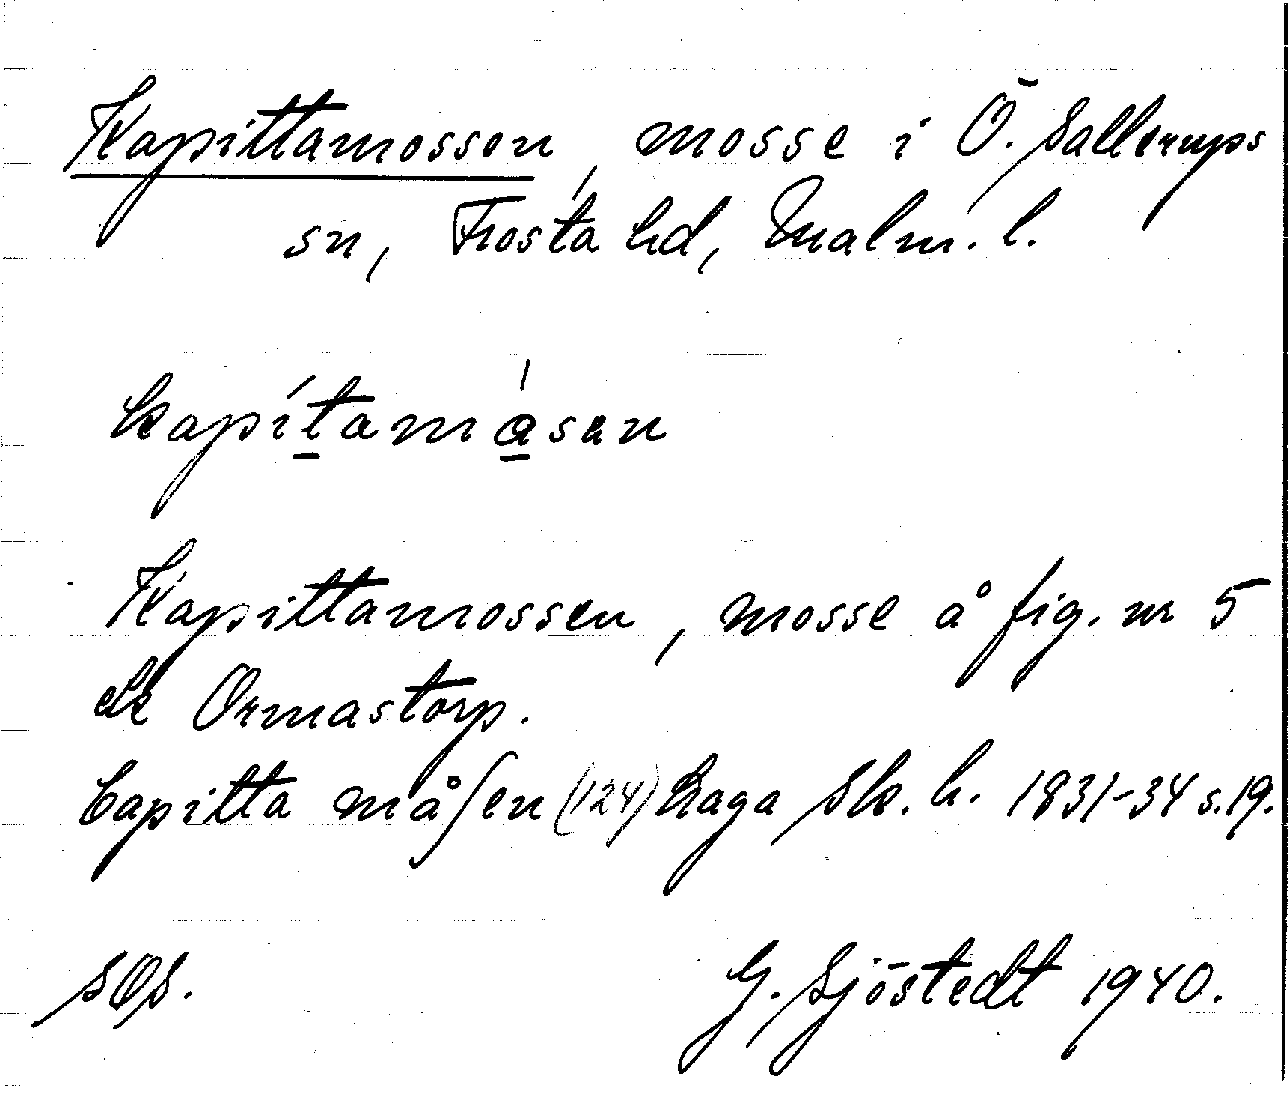 Kapittamossen, mosse i Ö. Sallerups
sn, Frosta hd, Malm. l.
kapítamåsen
Kapittamossen, mosse å fig. nr 5
Ormastorp.
Capitta måſen (124) Laga Sk. h. 1831-34 s. 19.
SOS.
G. Sjöstedt 1940.